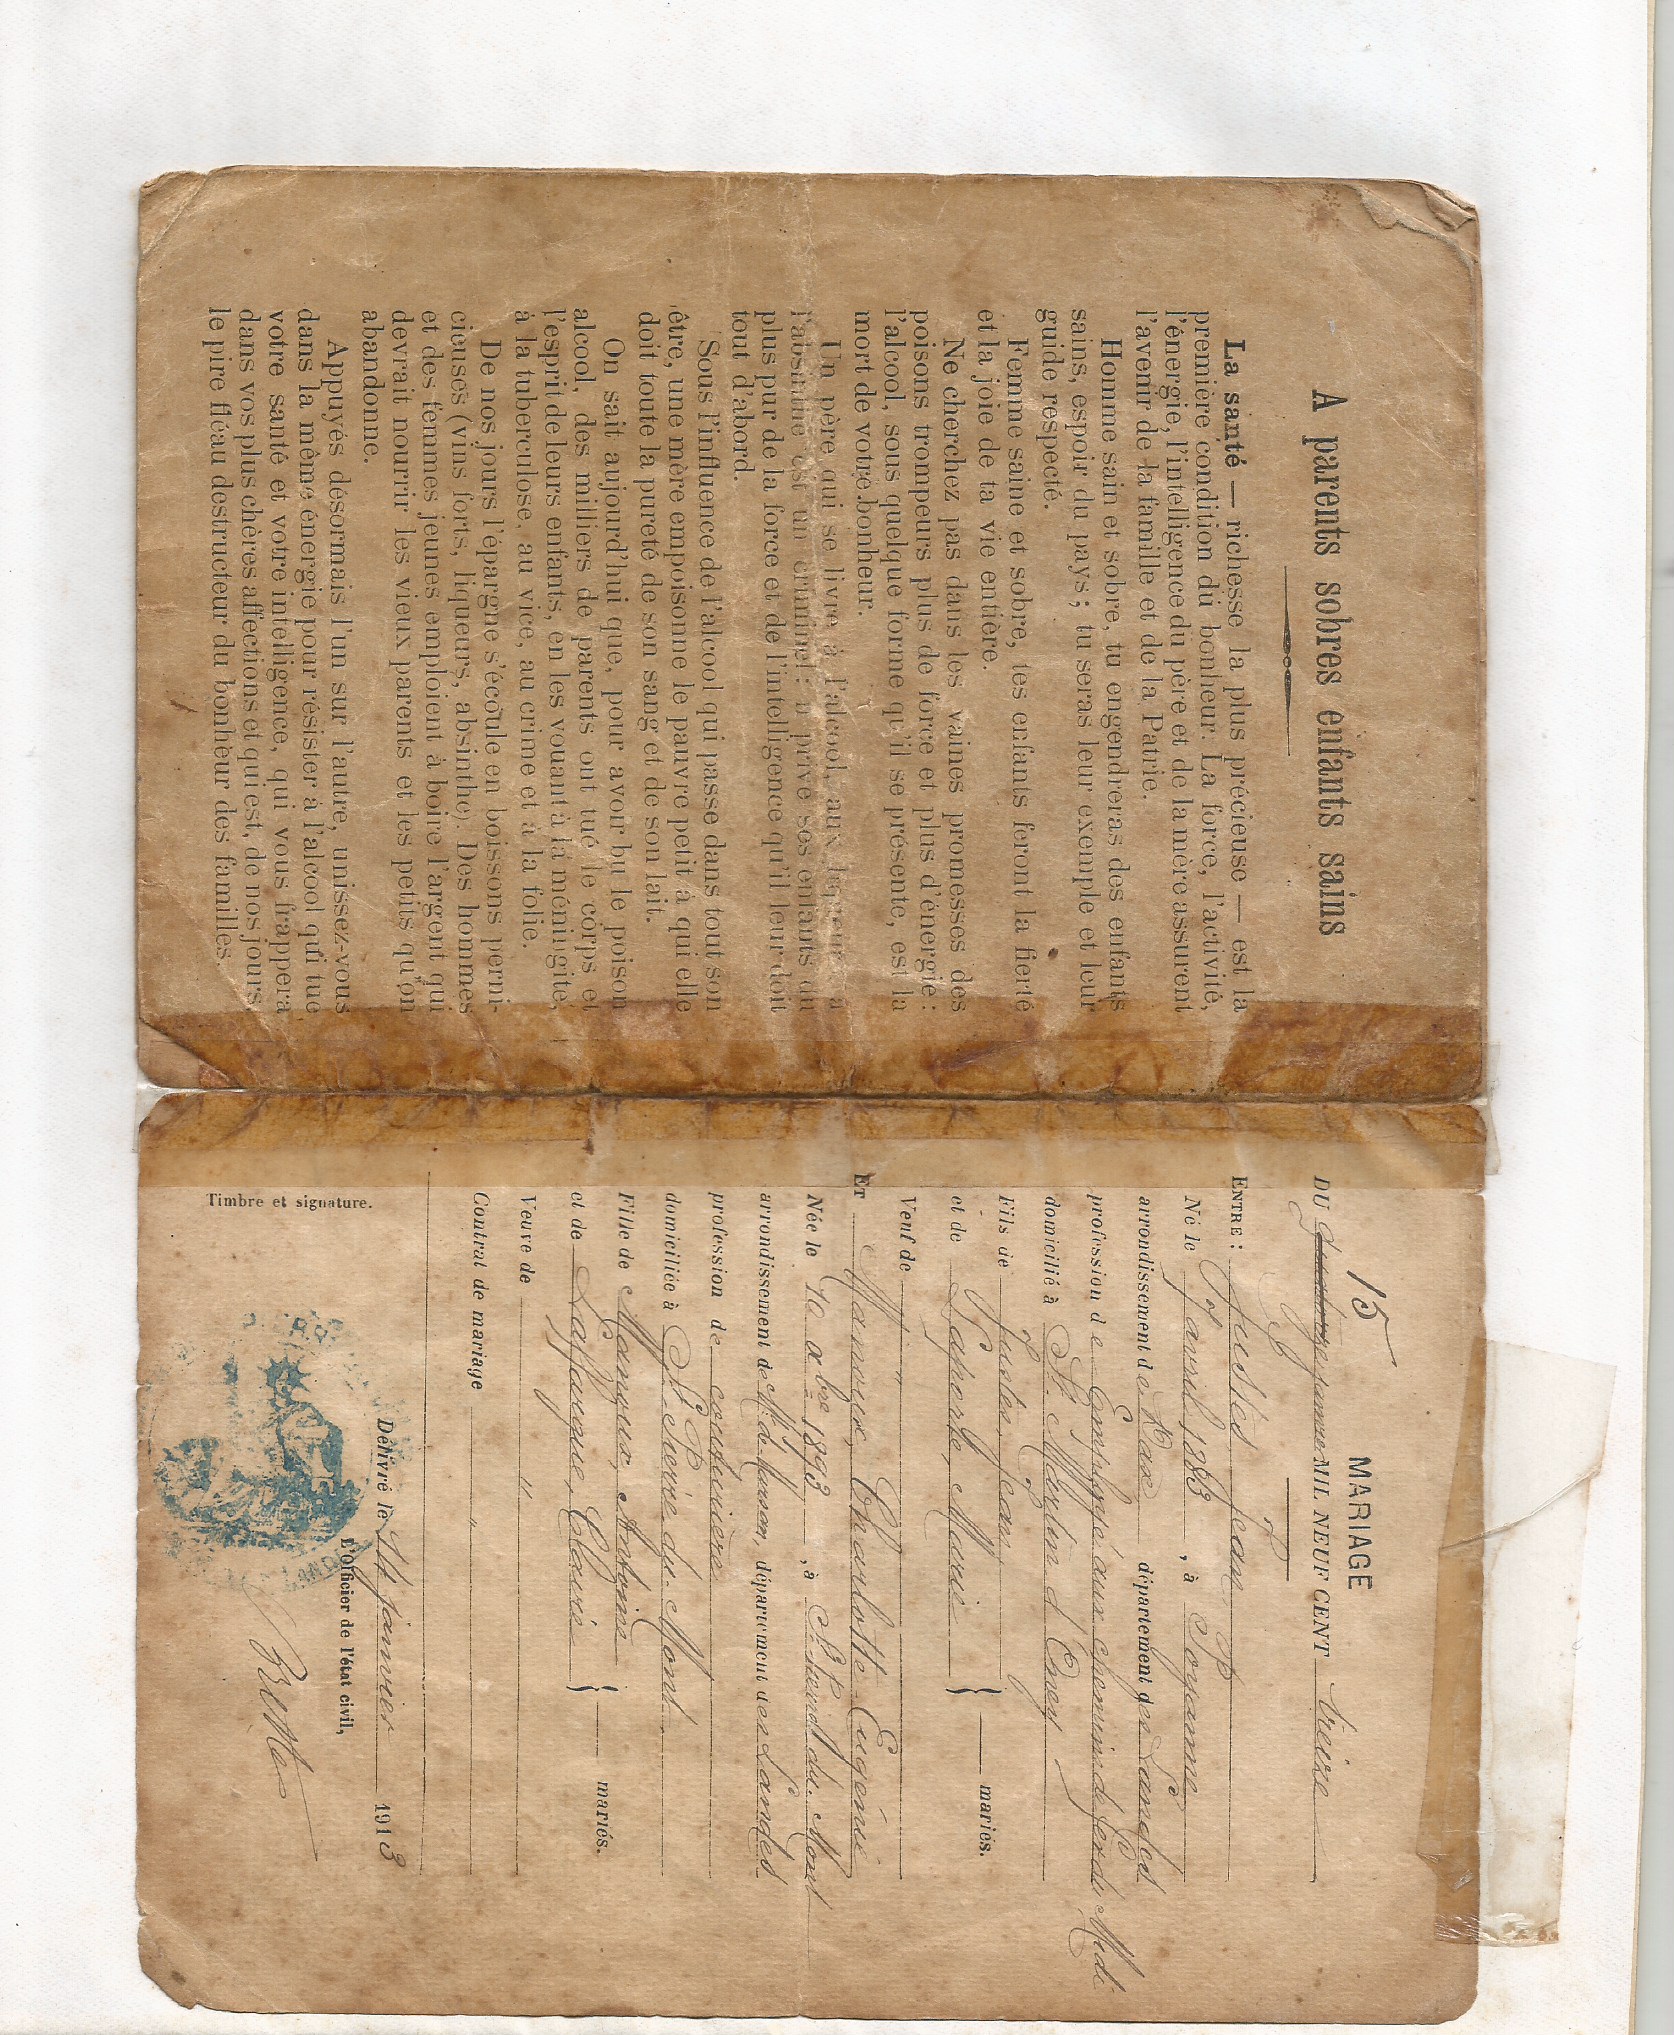 A parents sobres enfants sains
La santé — richesse la plus précieuse — est la
première condition du bonheur. La force, l'activité,
l'énergie, l'intelligence du père et de la mère assurent
l'avenir de la famille et de la Patrie.
Homme sain et sobre, tu engendreras des enfants
sains, espoir du pays ; tu seras leur exemple et leur
guide respecté.
Femme saine et sobre, tes enfants feront la fierté
et la joie de ta vie entière.
Ne cherchez pas dans les vaines promesses des
poisons trompeurs plus de force et plus d'énergie :
l'alcool, sous quelque forme qu'il se présente, est la
mort de votre bonheur.
Un père qui se livre à l'alcool, aux liqueurs, à
l'absinthe est un criminel : il prive ses enfants du
plus pur de la force et de l'intelligence qu'il leur doit
tout d'abord.
Sous l'influence de l'alcool qui passe dans tout son
être, une mère empoisonne le pauvre petit à qui elle
doit toute la pureté de son sang et de son lait.
On sait aujourd'hui que, pour avoir bu le poison
alcool, des milliers de parents ont tué le corps et
l'esprit de leurs enfants, en les vouant à la méningite,
à la tuberculose, au vice, au crime et à la folie.
De nos jours l'épargne s'écoule en boissons perni-
cieuses (vins forts, liqueurs, absinthe). Des hommes
et des femmes jeunes emploient à boire l'argent qui
devrait nourrir les vieux parents et les petits qu'on
abandonne.
Appuyés désormais l'un sur l'autre, unissez-vous
dans la même énergie pour résister à l'alcool qui tue
votre santé et votre intelligence, qui vous frappera
dans vos plus chères affections et qui est, de nos jours,
le pire fléau destructeur du bonheur des familles.
MARIAGE
15
DU janvier MIL NEUF CENT treize
ENTRE : Jusies Jean
Né le 7 avril 1883, à Poyanne
arrondissement de Dax département des Landes
profession de Employé aux chemins de fer du Midi
domicilié à St. Martin d'Oney
Fils de Justes, Jean
et de Laporte, Marie } — mariés.
Veuf de "
ET Mamoux, Charlotte Eugénie
Née le 10 xbre 1893, à St Pierre du Mont
arrondissement de Mt de Marsan, département des Landes
profession de couturière
domiciliée à St Pierre du Mont
Fille de Mamoux, Antoine
et de Laffargue, Claire } — mariés.
Veuve de "
Contrat de mariage "
Délivré le 14 janvier 1913
L'Officier de l'état civil,
Timbre et signature.